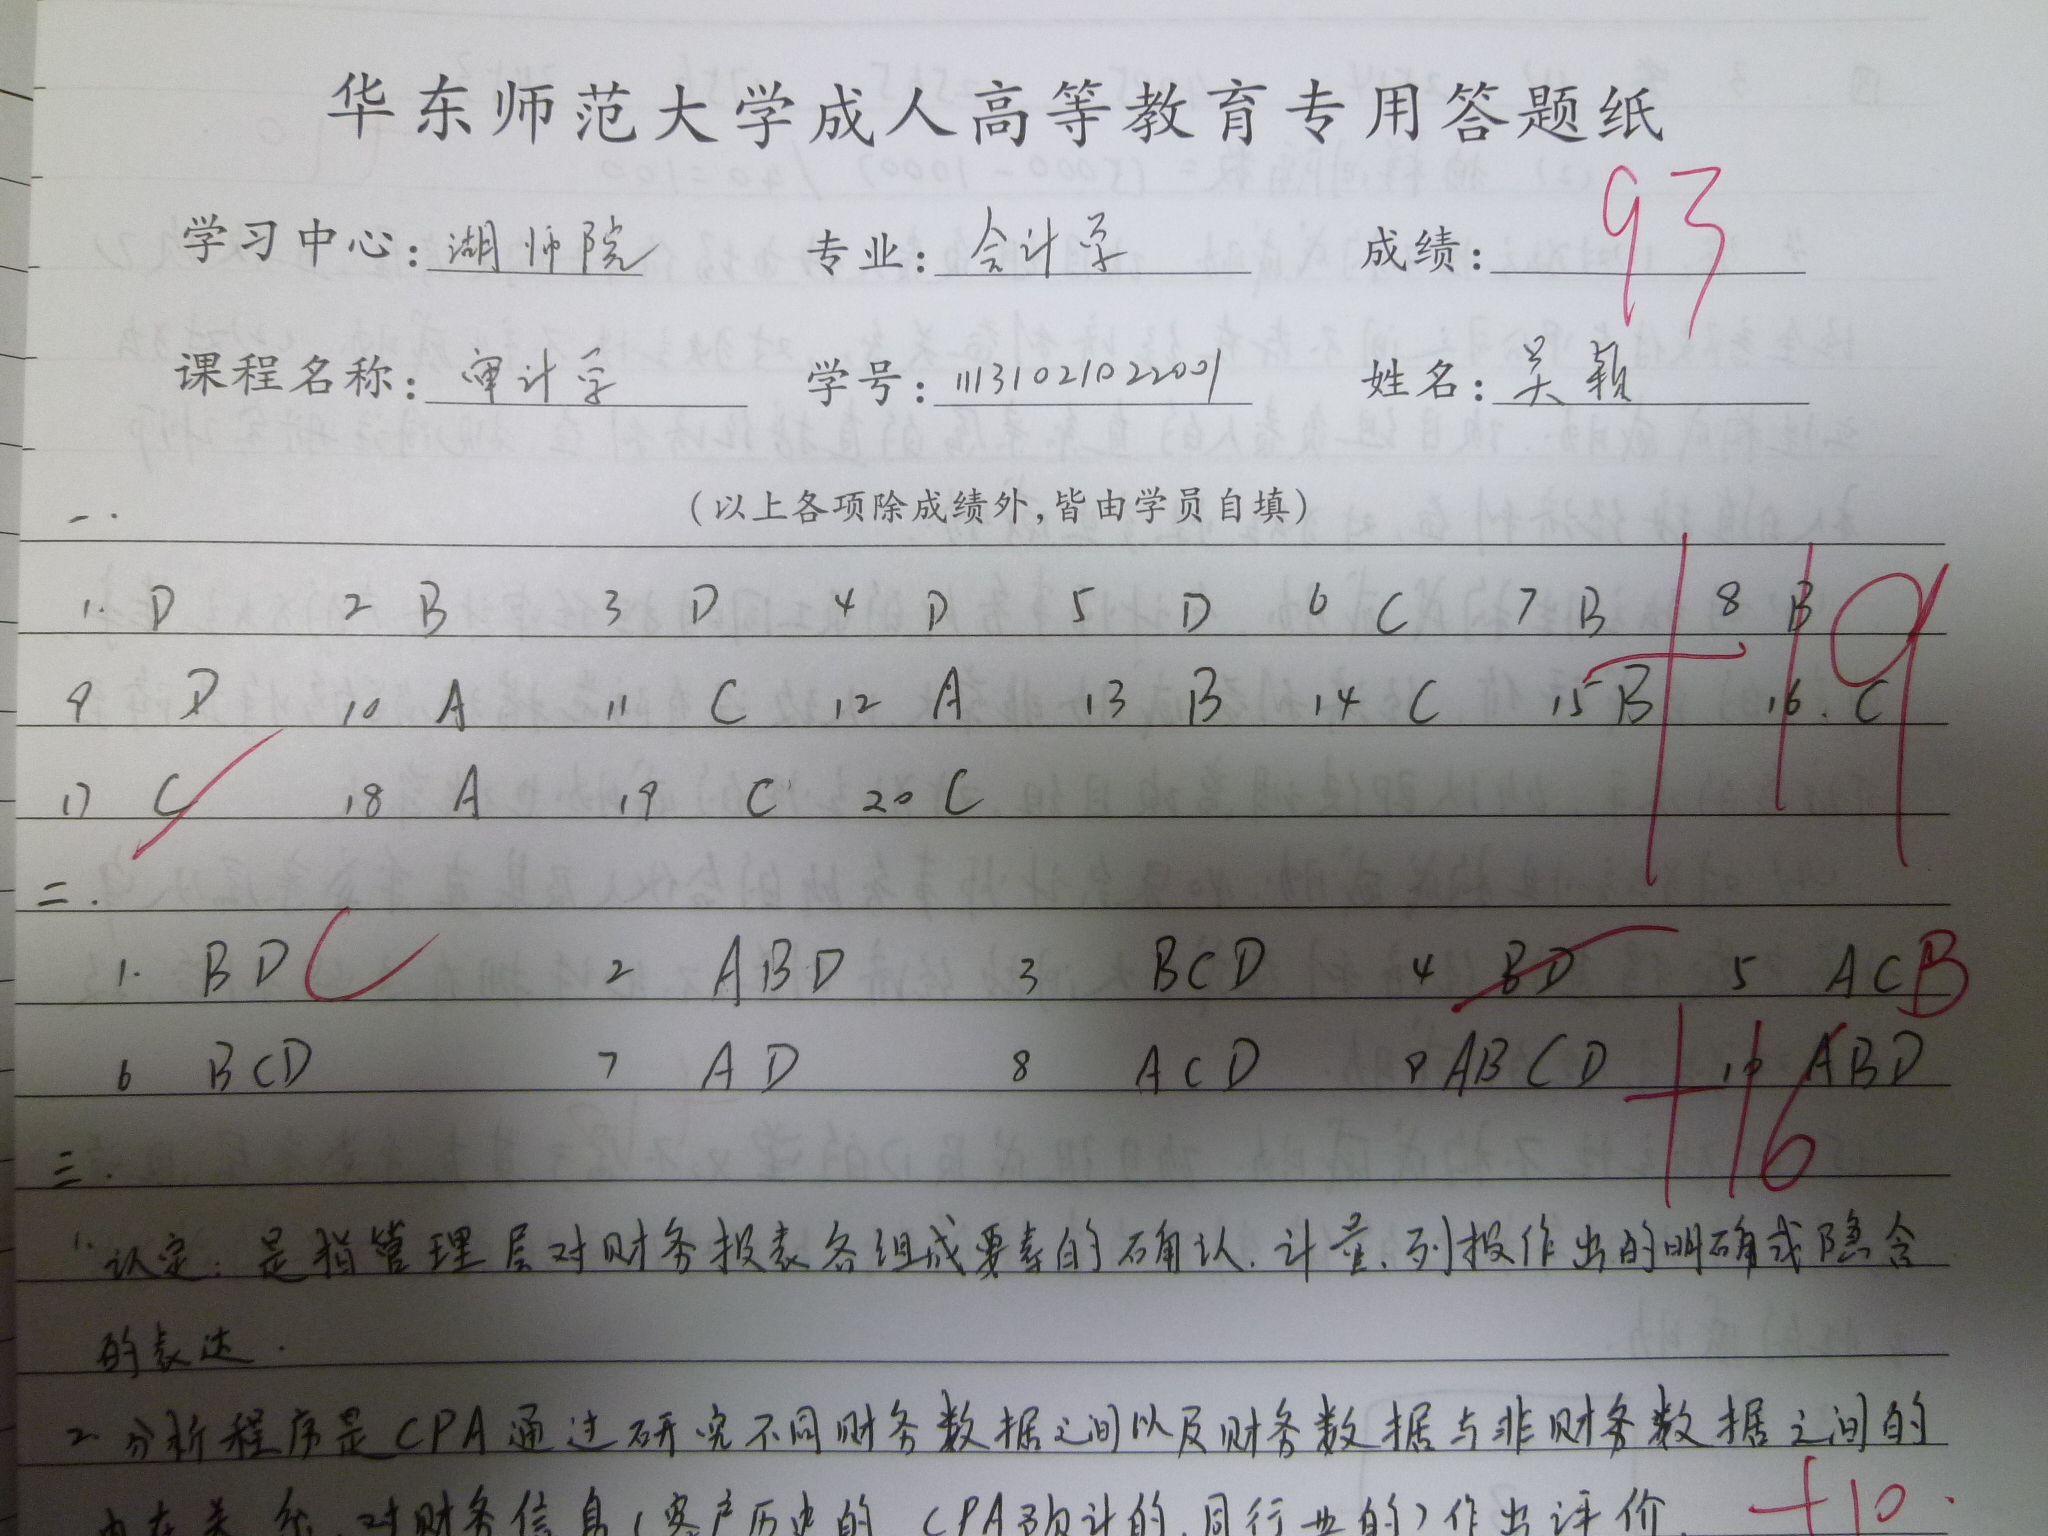 华东师范大学成人高等教育专用答题纸
学习中心：湖师院 专业：会计学 成绩：93
课程名称：审计学 学号：1113102102 2001 姓名：吴颖
（以上各项除成绩外，皆由学员自填）
一.
1. D 2 B 3 D 4 D 5 D 6 C 7 B 8 B
9 D 10 A 11 C 12 A 13 B 14 C 15 B 16. C
+19
17 C 18 A 19 C 20 C
二.
1. BD C 2 ABD 3 BCD 4 BD 5 AC B
6 BCD 7 AD 8 ACD 9 ABCD 10 ABD
+16
三.
1. 认定：是指管理层对财务报表各组成要素的确认、计量、列报作出的明确或隐含
的表达.
2. 分析程序是CPA通过研究不同财务数据之间以及财务数据与非财务数据之间的
内在关系，对财务信息（客户历史的、CPA预计的、同行业的）作出评价. +10.